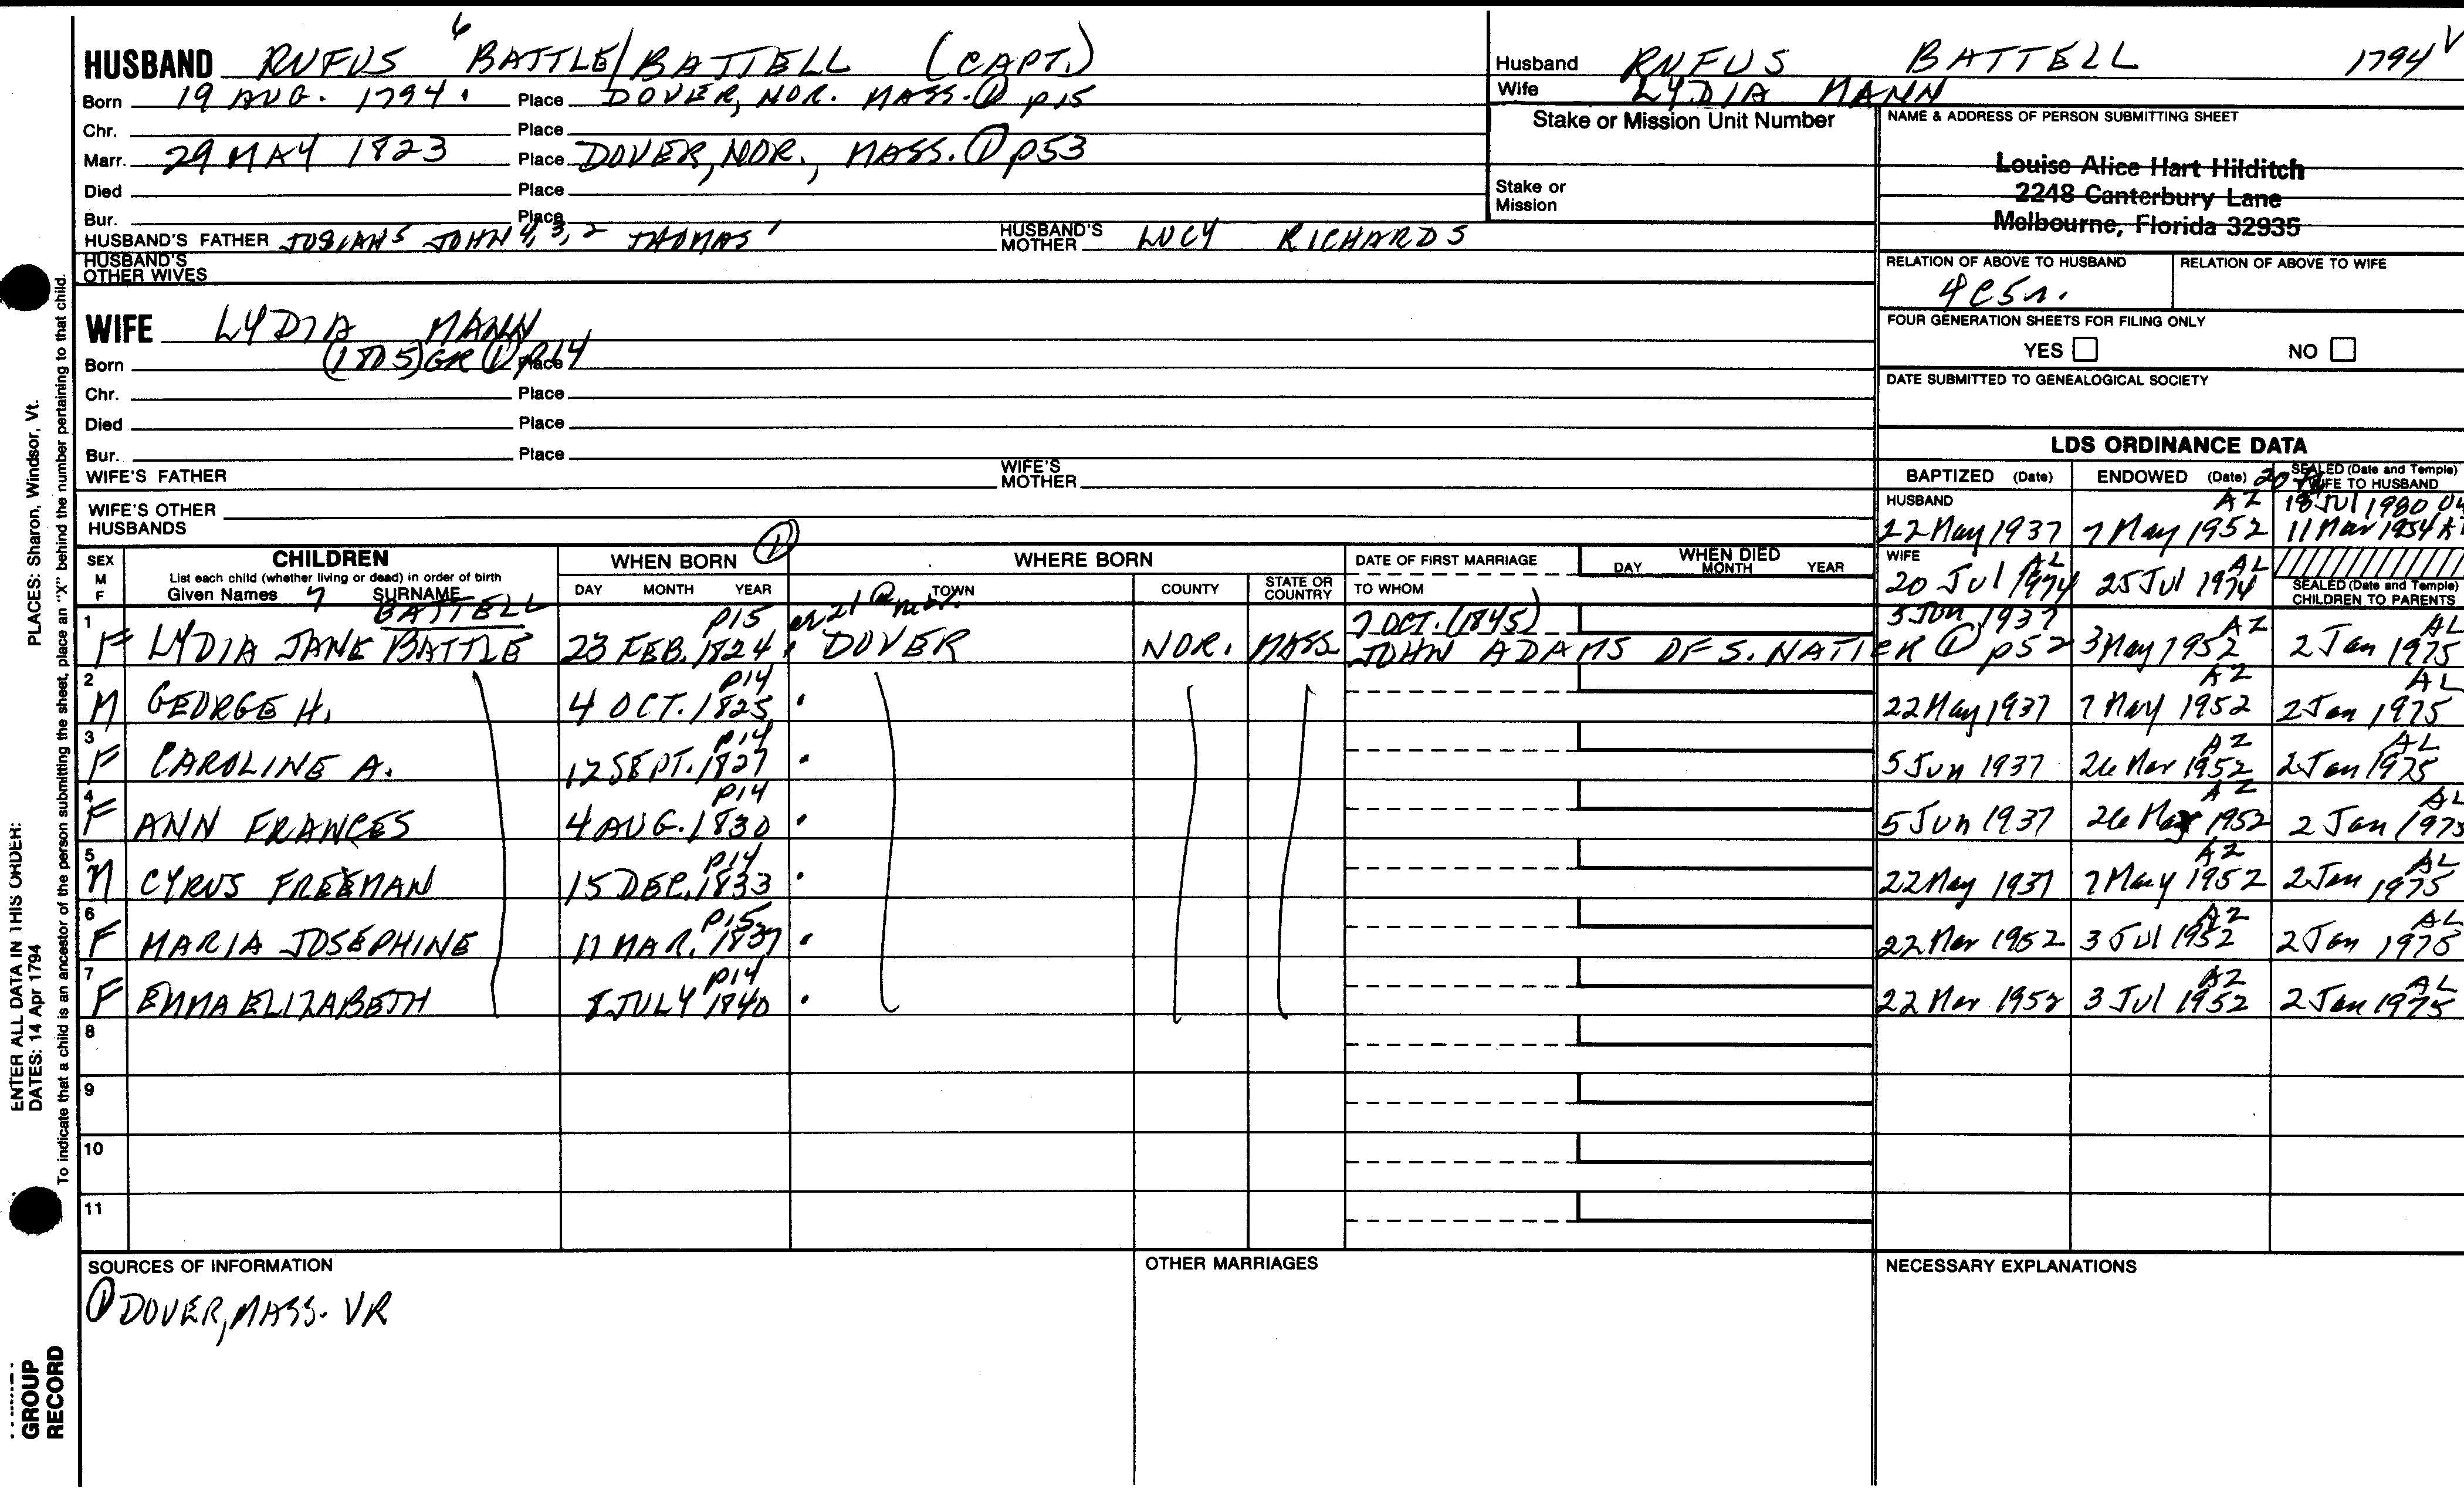 HUSBAND RUFUS 6 BATTLE/BATTELL (CAPT.)
Born 19 AUG. 1794. Place DOVER, NOR. MASS. ① p15
Chr. Place
Marr. 29 MAY 1823 Place DOVER, NOR., MASS. ① p53
Died Place
Bur. Place
HUSBAND'S FATHER JOSIAH5 JOHN 4, 3, 2 THOMAS 1 HUSBAND'S MOTHER LUCY RICHARDS
HUSBAND'S OTHER WIVES
WIFE LYDIA MANN
Born (1805) GR ① p14 Place
Chr. Place
Died Place
Bur. Place
WIFE'S FATHER WIFE'S MOTHER
WIFE'S OTHER HUSBANDS
Husband RUFUS BATTELL 1794 V
Wife LYDIA MANN
Stake or Mission Unit Number
Stake or Mission
NAME & ADDRESS OF PERSON SUBMITTING SHEET
Louise Alice Hart Hilditch
2248 Canterbury Lane
Melbourne, Florida 32935
RELATION OF ABOVE TO HUSBAND RELATION OF ABOVE TO WIFE
4C5r.
FOUR GENERATION SHEETS FOR FILING ONLY
YES NO
DATE SUBMITTED TO GENEALOGICAL SOCIETY
LDS ORDINANCE DATA
BAPTIZED (Date) ENDOWED (Date) SEALED (Date and Temple) WIFE TO HUSBAND
HUSBAND AZ 18 Jul 1980
22 May 1937 7 May 1952 11 Mar 1954
WIFE AL AL
20 Jul 1974 25 Jul 1974 SEALED (Date and Temple) CHILDREN TO PARENTS
SEX M F CHILDREN WHEN BORN ① WHERE BORN DATE OF FIRST MARRIAGE WHEN DIED
List each child (whether living or dead) in order of birth DAY MONTH YEAR
Given Names 7 SURNAME DAY MONTH YEAR TOWN COUNTY STATE OR COUNTRY TO WHOM
BATTELL p15 7 OCT. (1845) 5 Jun 1937 AZ AL
1 F LYDIA JANE BATTLE 23 FEB. 1824. DOVER NOR. MASS. JOHN ADAMS OF S. NATICK ① p52 3 May 1952 2 Jan 1975
p14 AZ AL
2 M GEORGE H. 4 OCT. 1825. 22 May 1937 7 May 1952 2 Jan 1975
p14 AZ AL
3 F CAROLINE A. 12 SEPT. 1827. 5 Jun 1937 26 Mar 1952 2 Jan 1975
p14 AZ AL
4 F ANN FRANCES 4 AUG. 1830. 5 Jun 1937 26 1952 2 Jan 1975
p14 AZ AL
5 M CYRUS FREEMAN 15 DEC. 1833. 22 May 1937 7 May 1952 2 Jan 1975
p15 AZ AL
6 F MARIA JOSEPHINE 11 MAR. 1837. 22 Mar 1952 3 Jul 1952 2 Jan 1975
p14 AZ AL
7 F EMMA ELIZABETH 8 JULY 1840. 22 Mar 1952 3 Jul 1952 2 Jan 1975
8
9
10
11
SOURCES OF INFORMATION OTHER MARRIAGES NECESSARY EXPLANATIONS
① DOVER, MASS. VR
PLACES: Sharon, Windsor, Vt.
ENTER ALL DATA IN THIS ORDER:
DATES: 14 Apr 1794
To indicate that a child is an ancestor of the person submitting the sheet, place an "X" behind the number pertaining to that child.
GROUP
RECORD